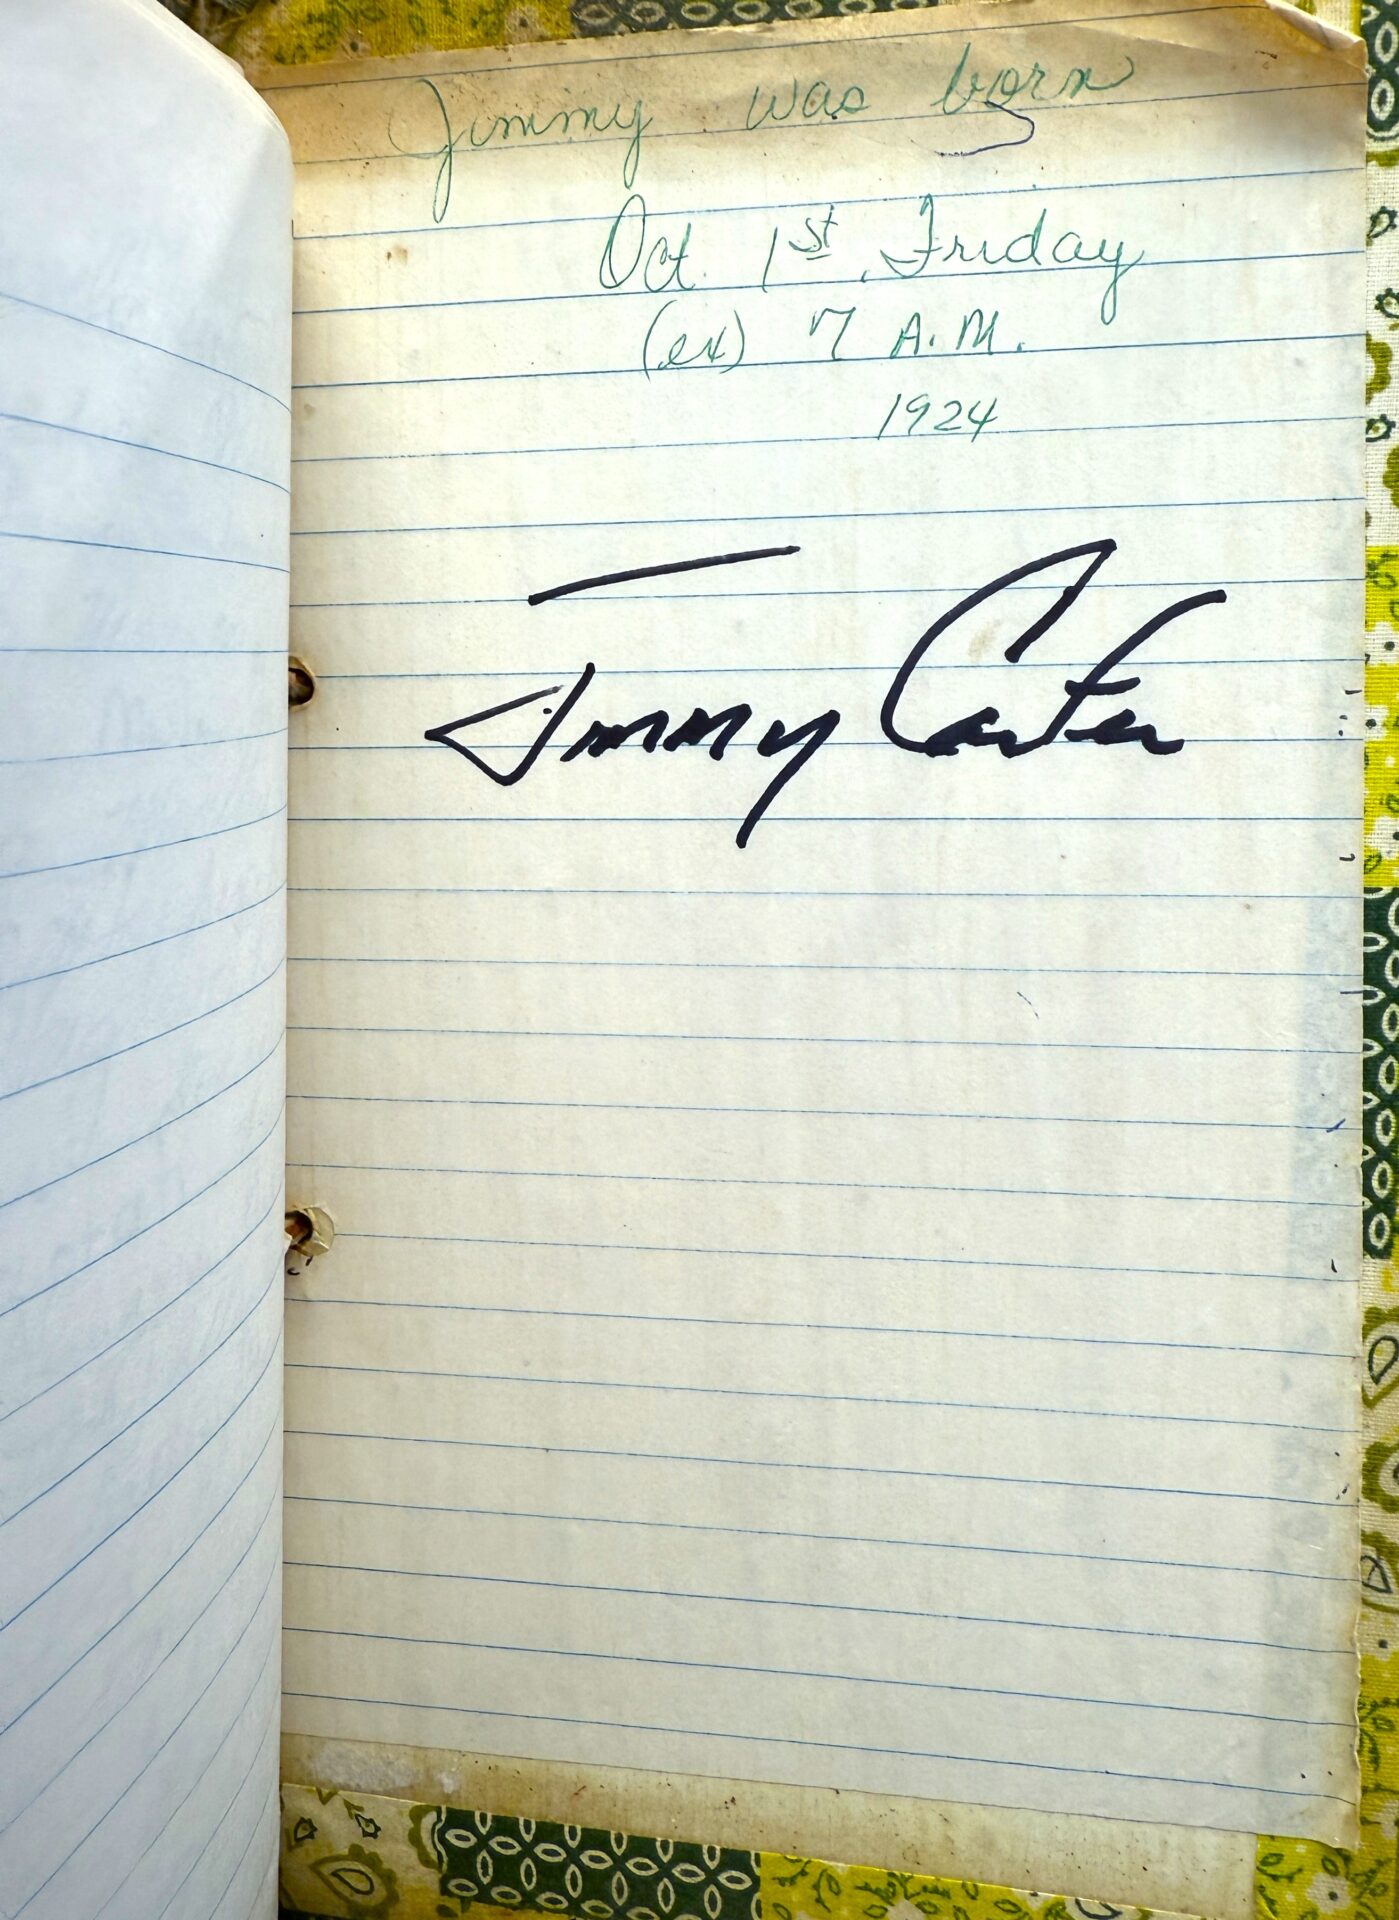 Jimmy was born
Oct. 1st, Friday
(ex) 7 A.M.
1924
Jimmy Carter